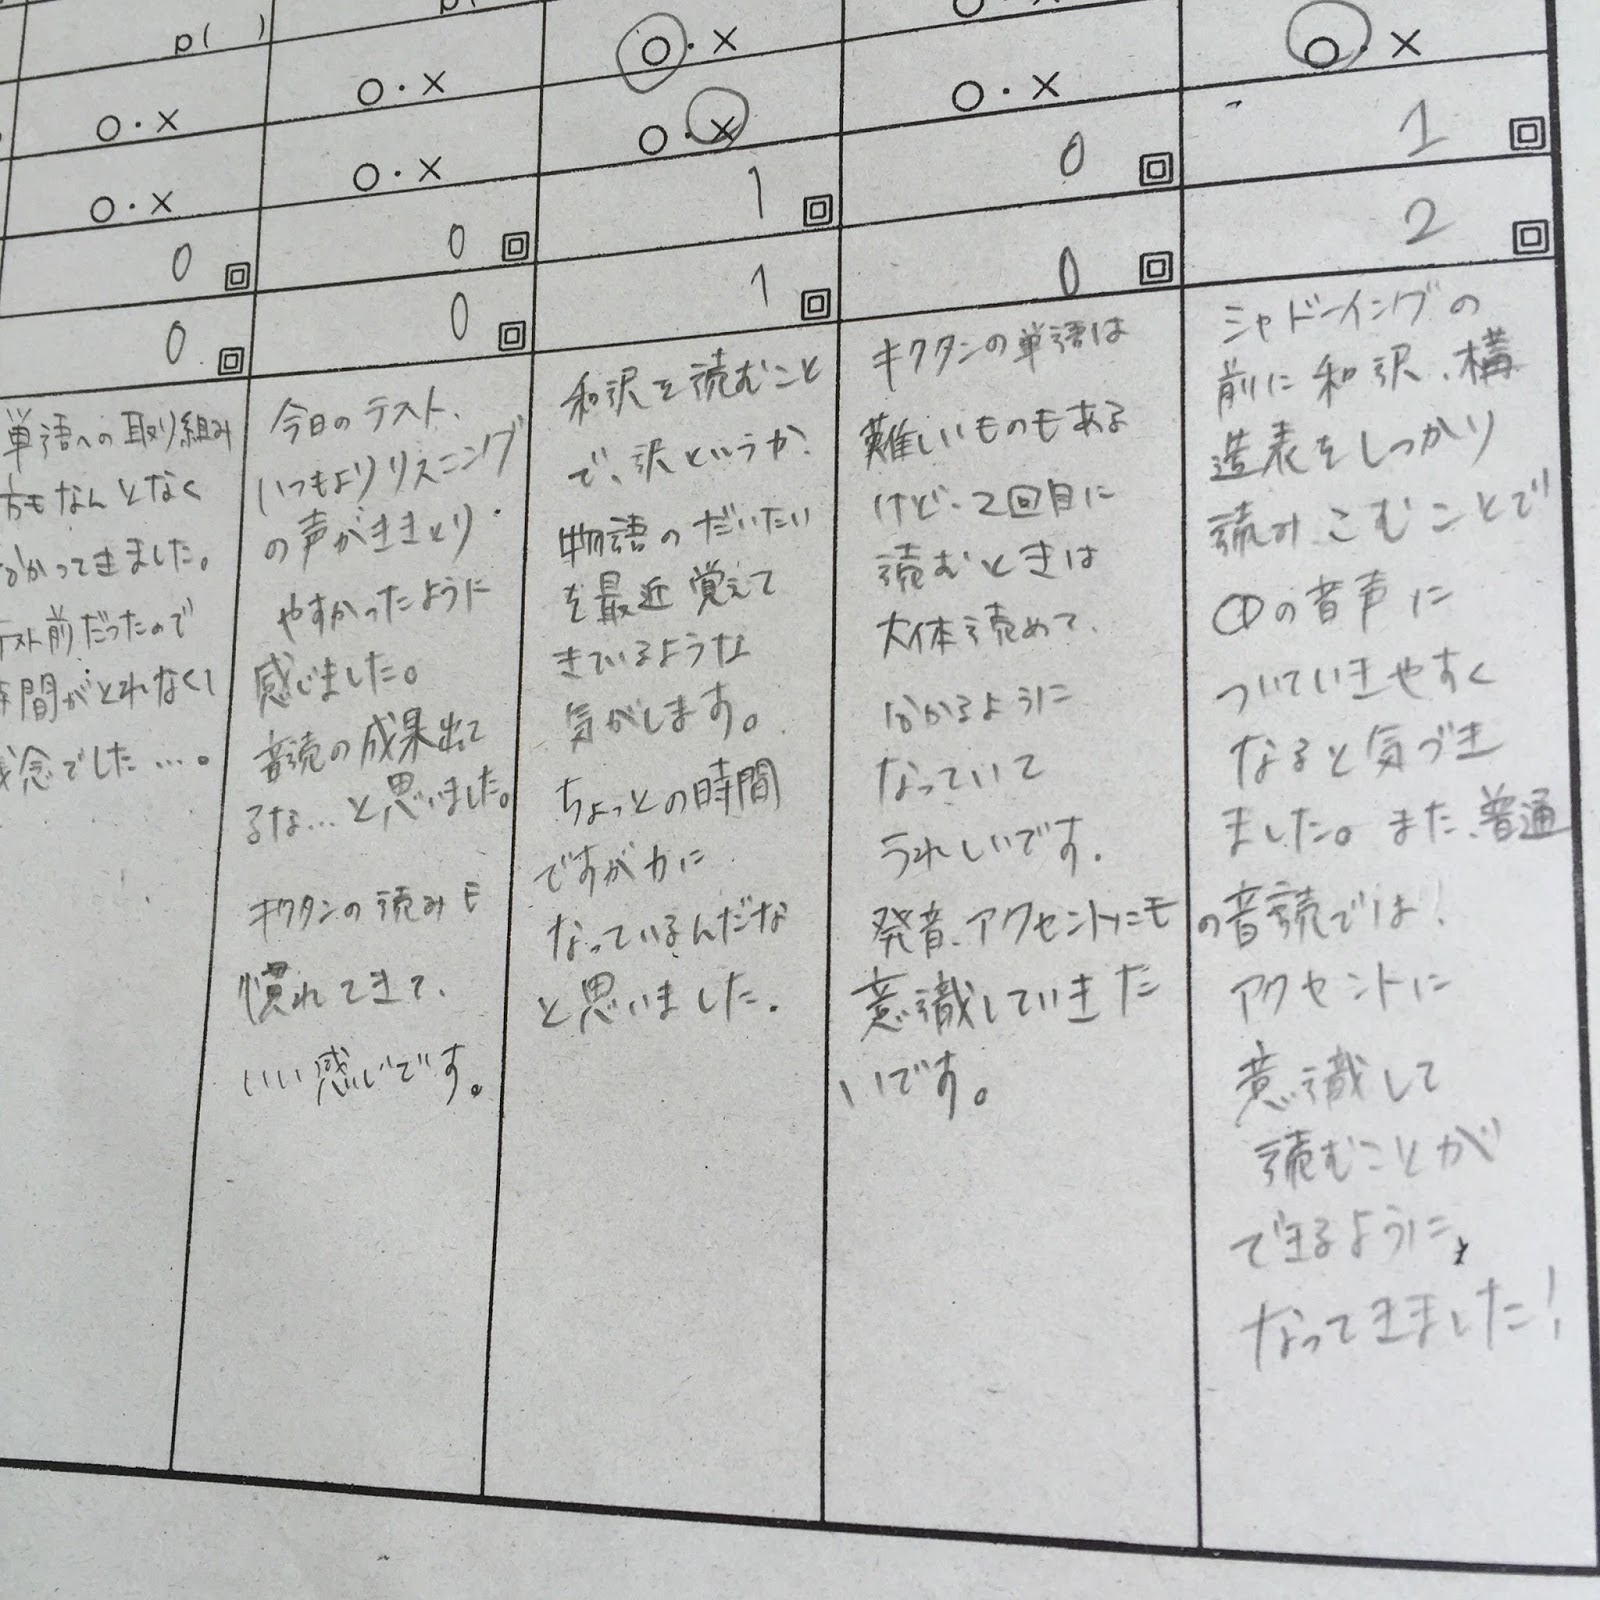 p( )
○・×
○・×
0 回
0 回
単語への取り組み
方もなんとなく
わかってきました。
テスト前だったので
時間がとれなくて
残念でした…。
○・×
○・×
0 回
0 回
今日のテスト、
いつもよりリスニング
の声がききとり
やすかったように
感じました。
音読の成果出て
るな…と思いました。
キクタンの読みも
慣れてきて、
いい感じです。
○・×
○・×
1 回
1 回
和沢を読むこと
で、沢というか、
物語のだいたい
を最近覚えて
きているような
気がします。
ちょっとの時間
ですが力に
なっているんだな
と思いました。
○・×
○・×
0 回
0 回
キクタンの単語は
難しいものもある
けど、2回目に
読むときは
大体読めて、
わかるように
なっていて
うれしいです。
発音、アクセントにも
意識していきた
いです。
○・×
1 回
2 回
シャドーイングの
前に和沢、構
造表をしっかり
読みこむことで
CDの音声に
ついていきやすく
なると気づき
ました。また、普通
の音読では!
アクセントに
意識して
読むことが
できるように、
なってきました!